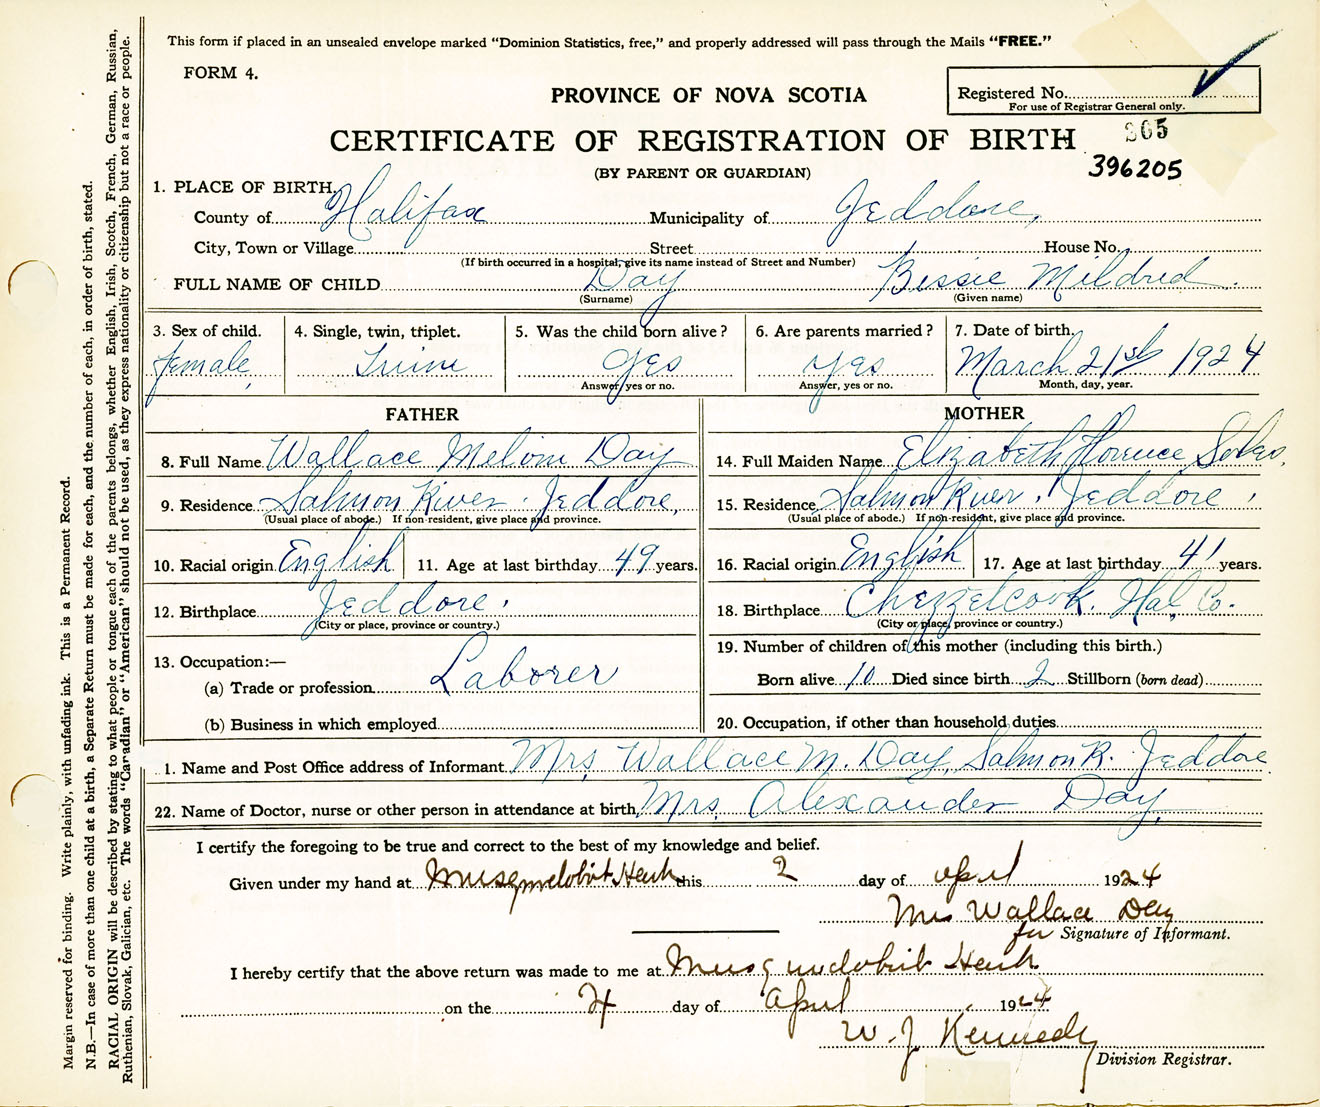 This form if placed in an unsealed envelope marked “Dominion Statistics, free,” and properly addressed will pass through the Mails “FREE.”
FORM 4.
PROVINCE OF NOVA SCOTIA
Registered No.
For use of Registrar General only.
CERTIFICATE OF REGISTRATION OF BIRTH
(BY PARENT OR GUARDIAN)
396205
1. PLACE OF BIRTH.
County of Halifax Municipality of Jeddore,
City, Town or Village Street House No.
(If birth occurred in a hospital, give its name instead of Street and Number)
FULL NAME OF CHILD Day Bessie Mildred.
(Surname) (Given name)
3. Sex of child. 4. Single, twin, triplet. 5. Was the child born alive? 6. Are parents married? 7. Date of birth.
female, Twin yes yes March 21st 1924
Answer, yes or no. Answer, yes or no. Month, day, year.
FATHER MOTHER
8. Full Name Wallace Day 14. Full Maiden Name Elizabeth Florence
9. Residence Salmon River. Jeddore, 15. Residence Salmon River. Jeddore,
(Usual place of abode.) If non-resident, give place and province. (Usual place of abode.) If non-resident, give place and province.
10. Racial origin English 11. Age at last birthday 49 years. 16. Racial origin English 17. Age at last birthday 41 years.
12. Birthplace Jeddore. 18. Birthplace Chezzetcook. Hal, Co.
(City or place, province or country.) (City or place, province or country.)
19. Number of children of this mother (including this birth.)
13. Occupation:—
(a) Trade or profession Laborer Born alive 10 Died since birth 2 Stillborn (born dead)
(b) Business in which employed 20. Occupation, if other than household duties
1. Name and Post Office address of Informant Mrs, Wallace M. Day, Salmon R. Jeddore
22. Name of Doctor, nurse or other person in attendance at birth Mrs, Alexander Day,
I certify the foregoing to be true and correct to the best of my knowledge and belief.
Given under my hand at Musquodoboit Harb this 2 day of april 1924
Mrs Wallace Day
for Signature of Informant.
I hereby certify that the above return was made to me at Musquodoboit Harb
on the 4 day of april 1924
W. J. Kennedy
Division Registrar.
Margin reserved for binding. Write plainly, with unfading ink. This is a Permanent Record.
N.B.—In case of more than one child at a birth, a Separate Return must be made for each, and the number of each, in order of birth, stated.
RACIAL ORIGIN will be described by stating to what people or tongue each of the parents belongs, whether English, Irish, Scotch, French, German, Russian,
Ruthenian, Slovak, Galician, etc. The words “Canadian” or “American” should not be used, as they express nationality or citizenship but not a race or people.